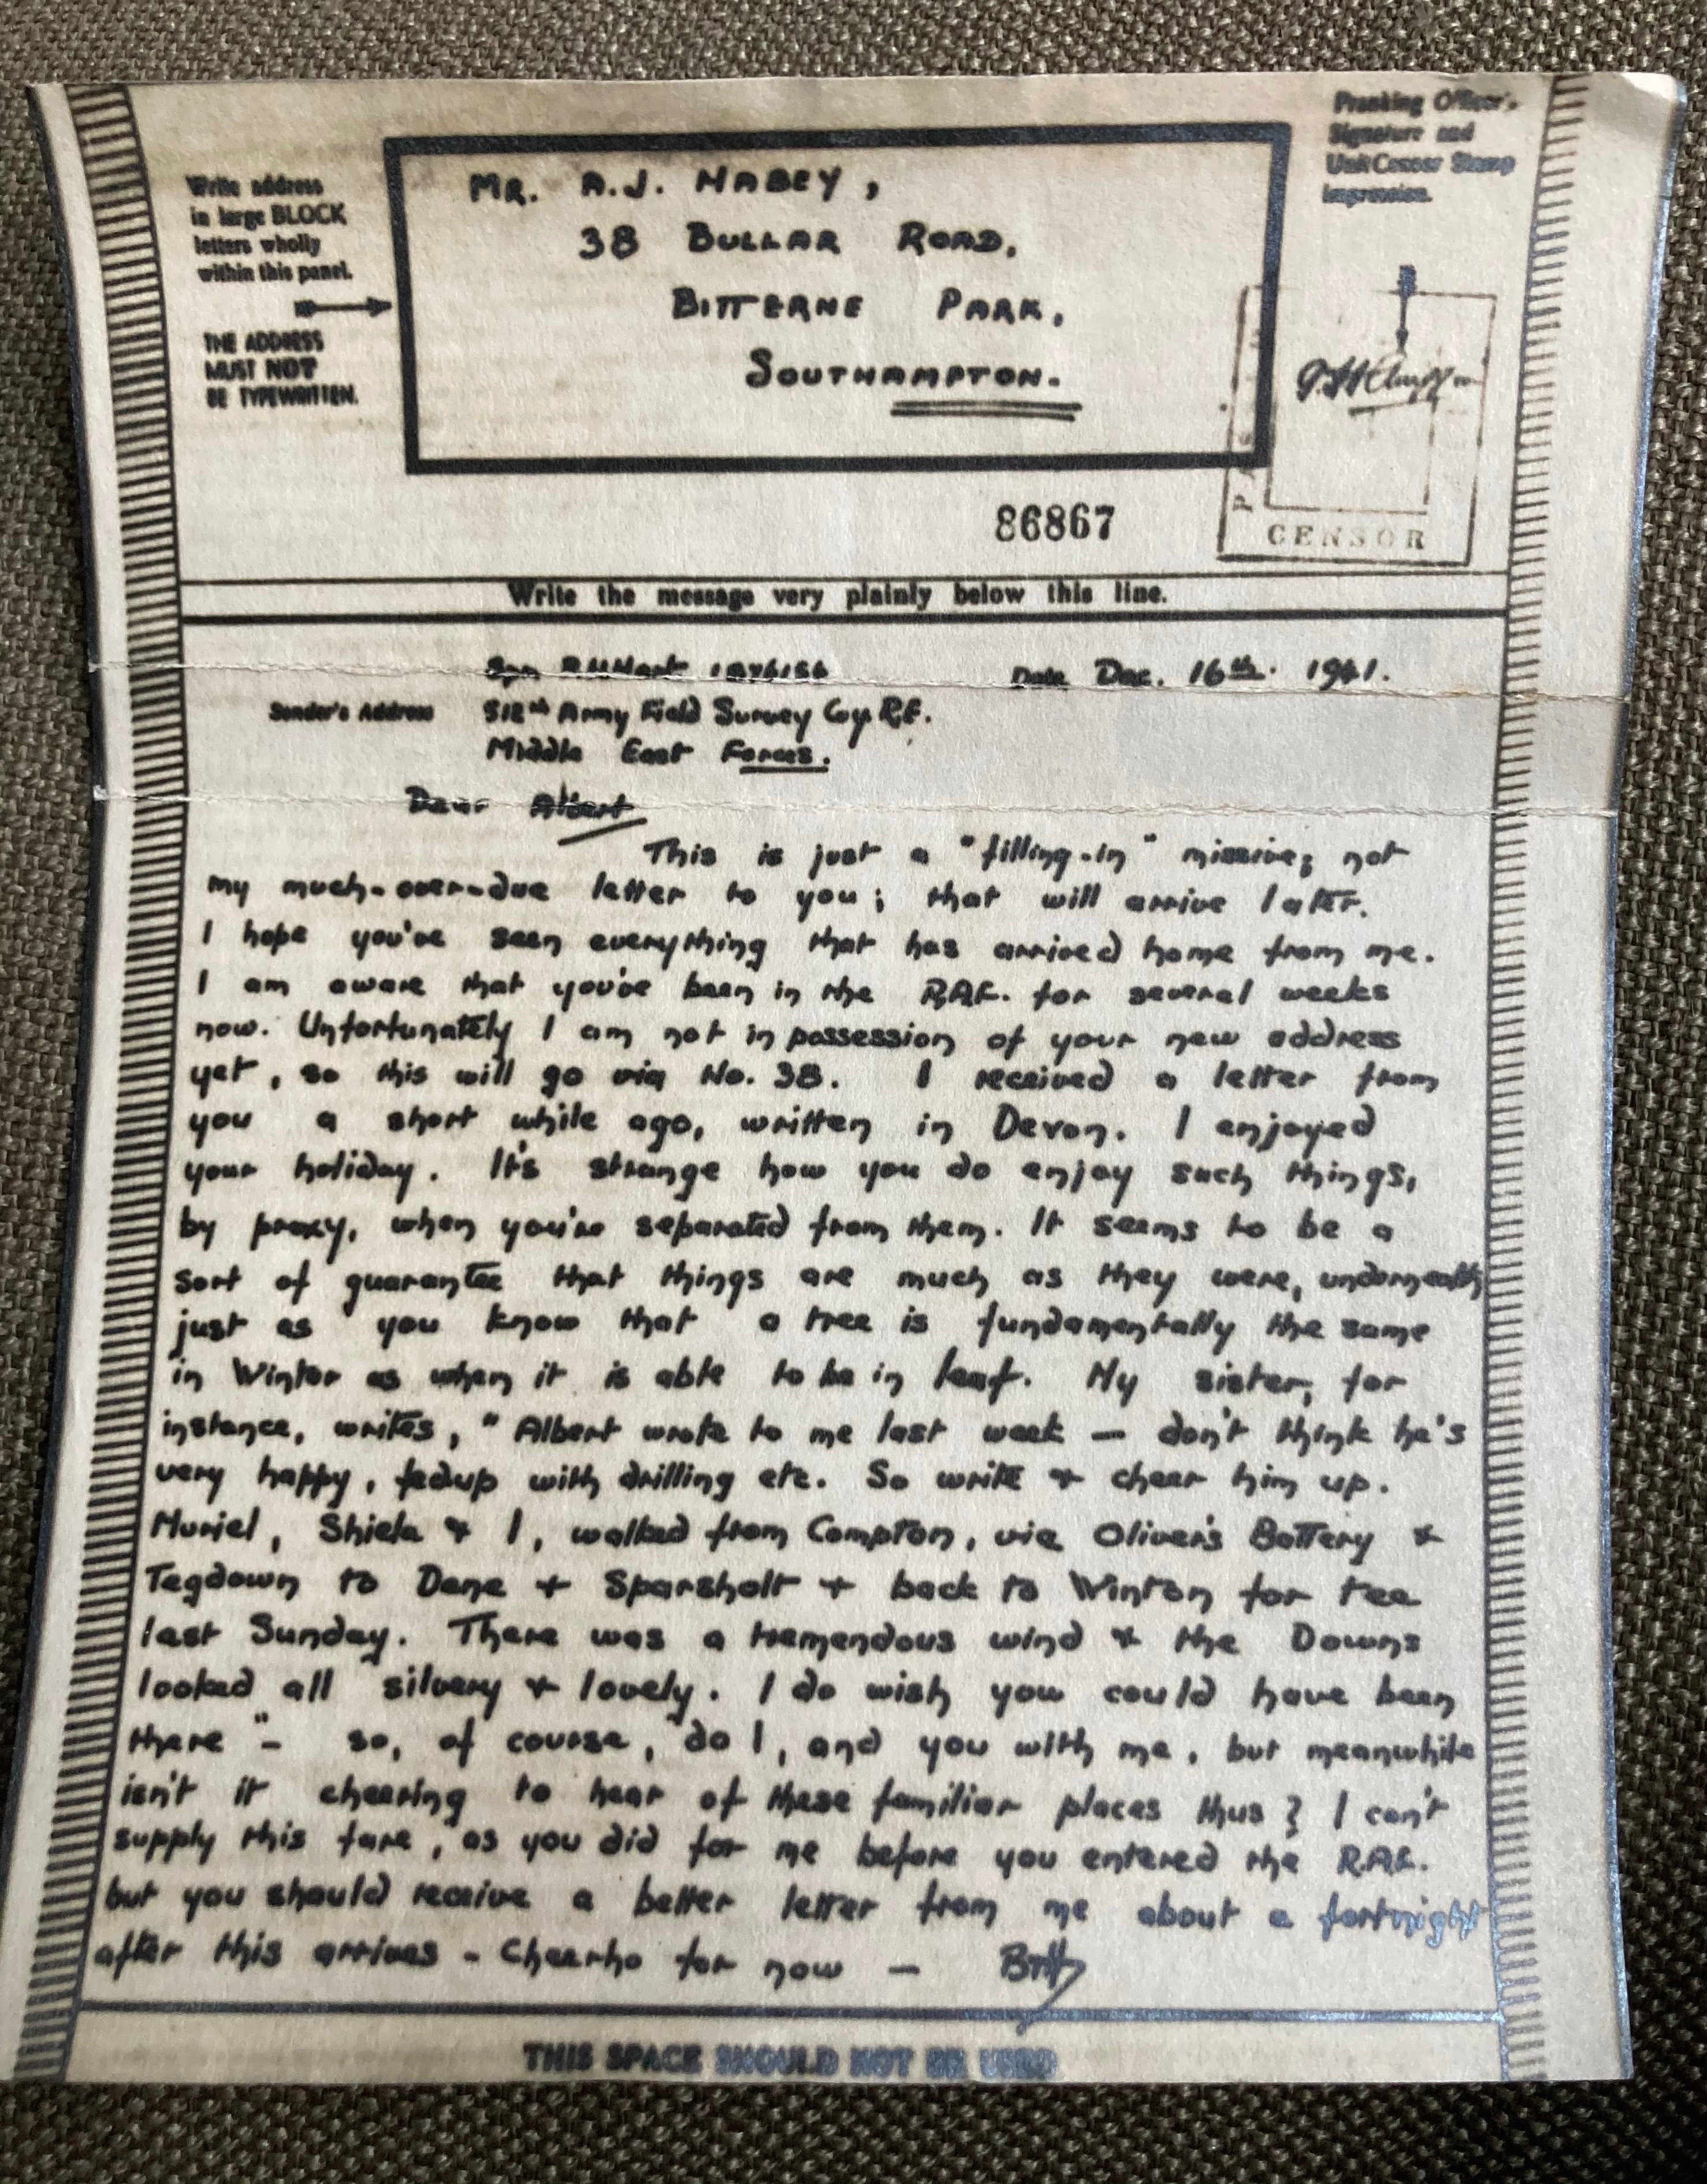 Write address
in large BLOCK
letters wholly
within this panel.
THE ADDRESS
MUST NOT
BE TYPEWRITTEN.
MR. A.J. HABEY,
38 BULLAR ROAD,
BITTERNE PARK,
SOUTHAMPTON.
Franking Officer's
Signature and
Unit Censor Stamp
Impression.
CENSOR
86867
Write the message very plainly below this line.
Date Dec. 16th. 1941.
Sender's Address 512th Army Field Survey Coy R.E.
Middle East Forces.
Dear Albert
This is just a "filling-in" missive; not
my much-over-due letter to you; that will arrive later.
I hope you've seen everything that has arrived home from me.
I am aware that you've been in the R.A.F. for several weeks
now. Unfortunately I am not in possession of your new address
yet, so this will go via No. 38. I received a letter from
you a short while ago, written in Devon. I enjoyed
your holiday. It's strange how you do enjoy such things,
by proxy, when you're separated from them. It seems to be a
sort of guarantee that things are much as they were, underneath
just as you know that a tree is fundamentally the same
in Winter as when it is able to be in leaf. My sister, for
instance, writes, "Albert wrote to me last week — don't think he's
very happy, fedup with drilling etc. So write & cheer him up.
Muriel, Shiela & I, walked from Compton, via Oliver's Battery &
Tegdown to Dene & Sparsholt & back to Winton for tea
last Sunday. There was a tremendous wind & the Downs
looked all silvery & lovely. I do wish you could have been
there" - so, of course, do I, and you with me, but meanwhile
isn't it cheering to hear of these familiar places thus? I can't
supply this fare, as you did for me before you entered the R.A.F.
but you should receive a better letter from me about a fortnight
after this arrives - Cheerho for now —
THIS SPACE SHOULD NOT BE USED